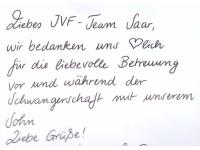 Liebes IVF-Team Saar,
wir bedanken uns ♡lich
für die liebevolle Betreuung
vor und während der
Schwangerschaft mit unserem
Sohn
Liebe Grüße!